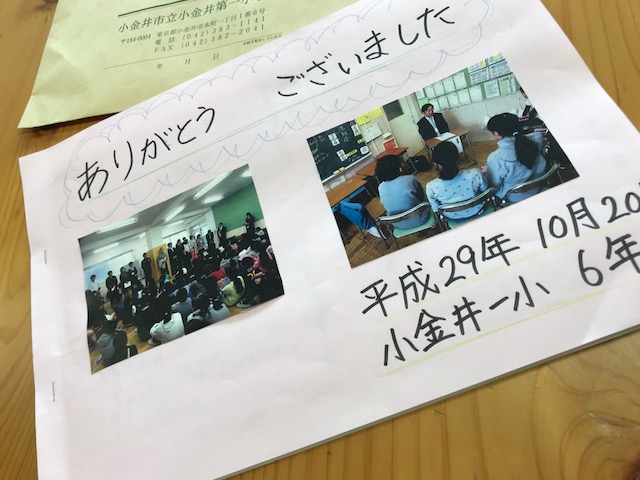 小金井市立小金井第一小
〒184-0004 東京都小金井市本町一丁目1番6号
電話 (042)383-1141
FAX (042)382-2041
年 月 日
ありがとう ございました
平成29年 10月20
小金井一小 6年